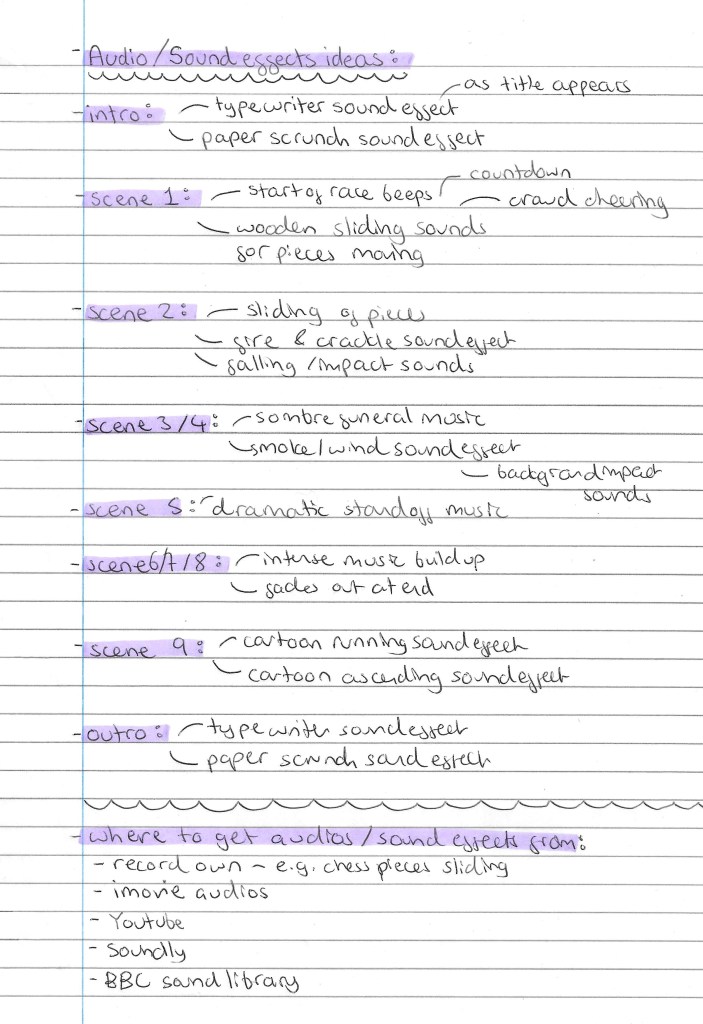 - Audio/Sound effects ideas:
as title appears
- intro: - typewriter sound effect
- paper scrunch sound effect
countdown
- scene 1: - start of race beeps - crowd cheering
- wooden sliding sounds
for pieces moving
- scene 2: - sliding of pieces
- fire & crackle sound effect
- falling/impact sounds
- scene 3/4: - sombre funeral music
- smoke/wind sound effect
- background impact
sounds
- scene 5: - dramatic standoff music
- scene 6/7/8: - intense music build up
- fades out at end
- scene 9: - cartoon running sound effect
- cartoon ascending sound effect
- outro: - typewriter sound effect
- paper scrunch sound effect
- where to get audios/sound effects from:
- record own - e.g. chess pieces sliding
- imovie audios
- Youtube
- Soundly
- BBC sound library